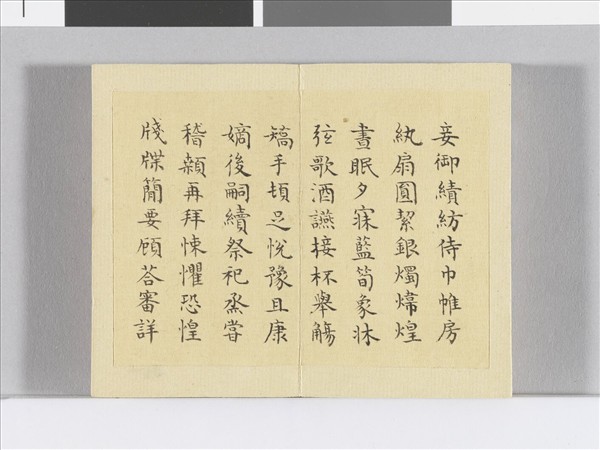 妾御績紡侍巾帷房
紈扇圓絜銀燭煒煌
晝眠夕寐藍筍象牀
弦歌酒讌接杯舉觴
矯手頓足悅豫且康
嫡後嗣續祭祀烝嘗
稽顙再拜悚懼恐惶
牋牒簡要顧荅審詳